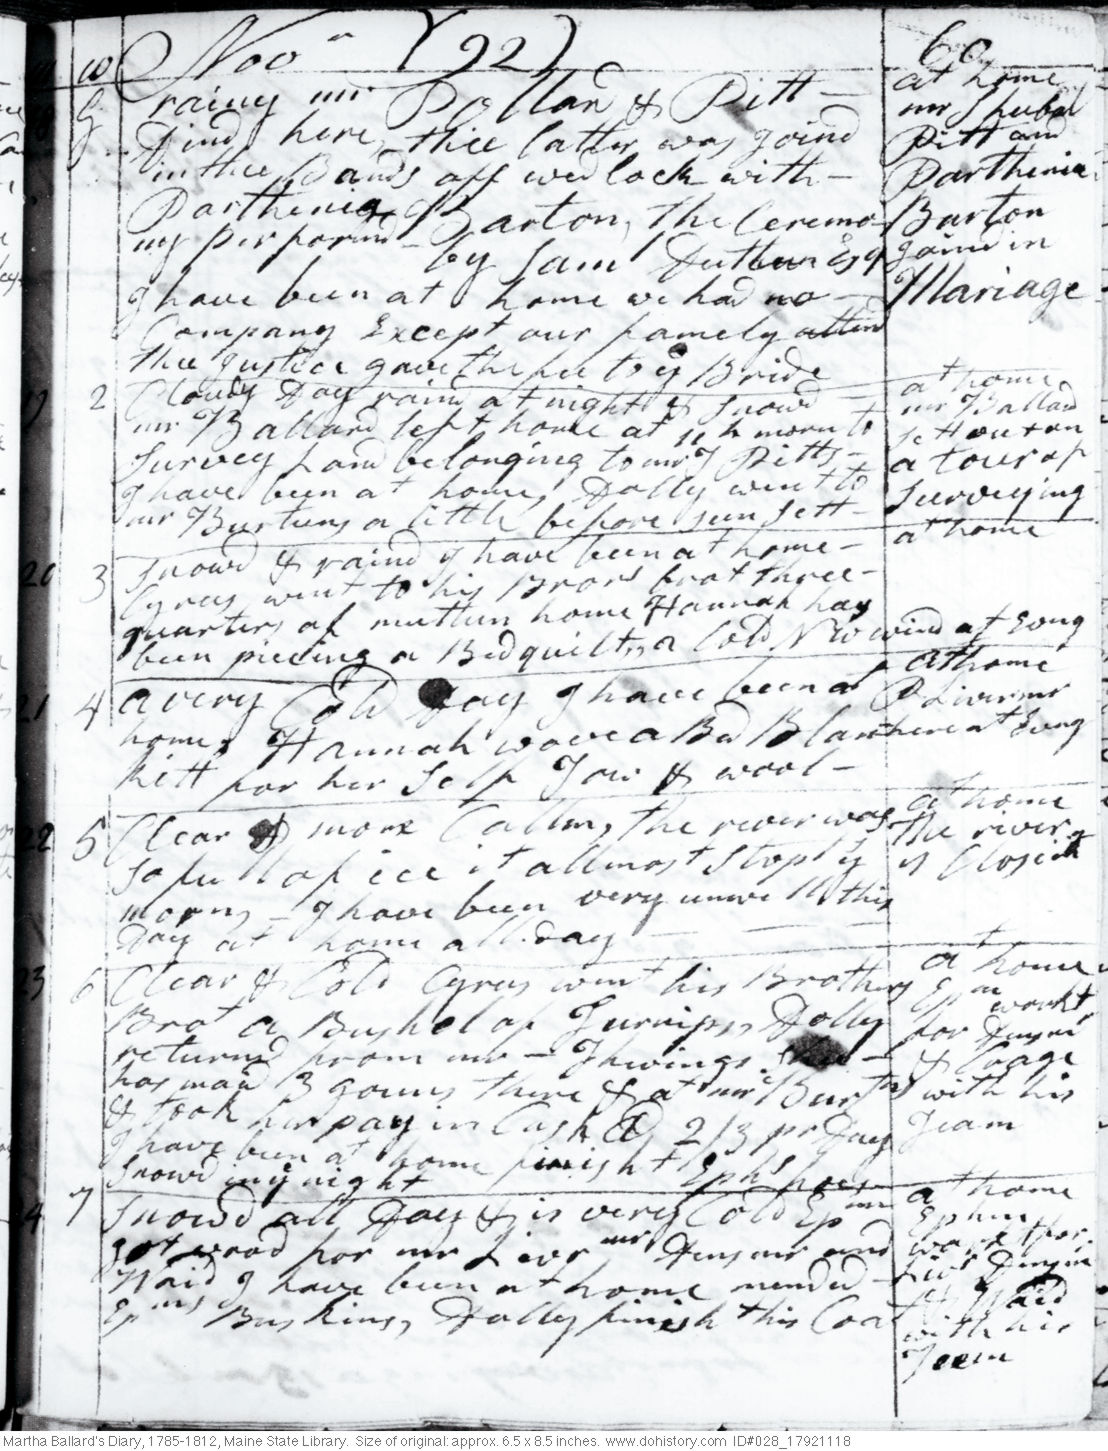 Nov.r (92) 60
18 G rainy mr Pollard & Pitt
Dind here, thee latter was joind
in thee Bands off wedlock with
Parthenia Barton, the Ceremo
ny performd by Sam Dutton Esq
I have been at home we had no
Company Except our famely attend
thee Justice gave the fee to ye Bride
at home
mr Shubal
Pitt and
Parthenia
Barton
joind in
Mariage
19 2 Cloudy Day raind at night & Snowd
mr Ballard left home at 11 h morn to
Survey land belonging to mr J Pitts
I have been at home, Dolly went to
mr Burtuns a little before sun sett
at home
mr Ballard
sett out on
a tour of
Surveying
20 3 Snowd & raind I have been at home
Cyrus went to his Brors brot three
quarters of muttun home Hannah has
been piecing a Bedquilt, a Cold N W wind at Evng
at home
21 4 a very Cold Day I have been at
home, Hannah wove a Bed Blan
kitt for her Self Tow & wool
at home
mr
here at Evng
22 5 Clear & more Callm, the river was
so full of ice it allmost Stopt ys
morng I have been very unwell this
Day at home all day
at home
the river
is Closeing
23 6 Clear & Cold Cyrus went his Brothers
Brot a Bushel of Turnips, Dolly
returnd from mr Thwings She
has maid 3 gowns there & at mr Burtns
& took her pay in Cash @ 2/3 pr Day
I have been at home finisht Ephs hoes
Snowd in ye night
at home
Epm workt
for Densmr
& Page
with his
Team
24 7 Snowd all Day & is very Cold Epm
got wood for mr Livermr Densmr and
Waid I have been at home mended
Epms Buskins, Dolly finish this Coat
at home
Ephm
workt for
Livr Densmr
& Waid
with his
Teem
Martha Ballard's Diary, 1785-1812, Maine State Library. Size of original: approx. 6.5 x 8.5 inches. www.dohistory.com ID#028_17921118